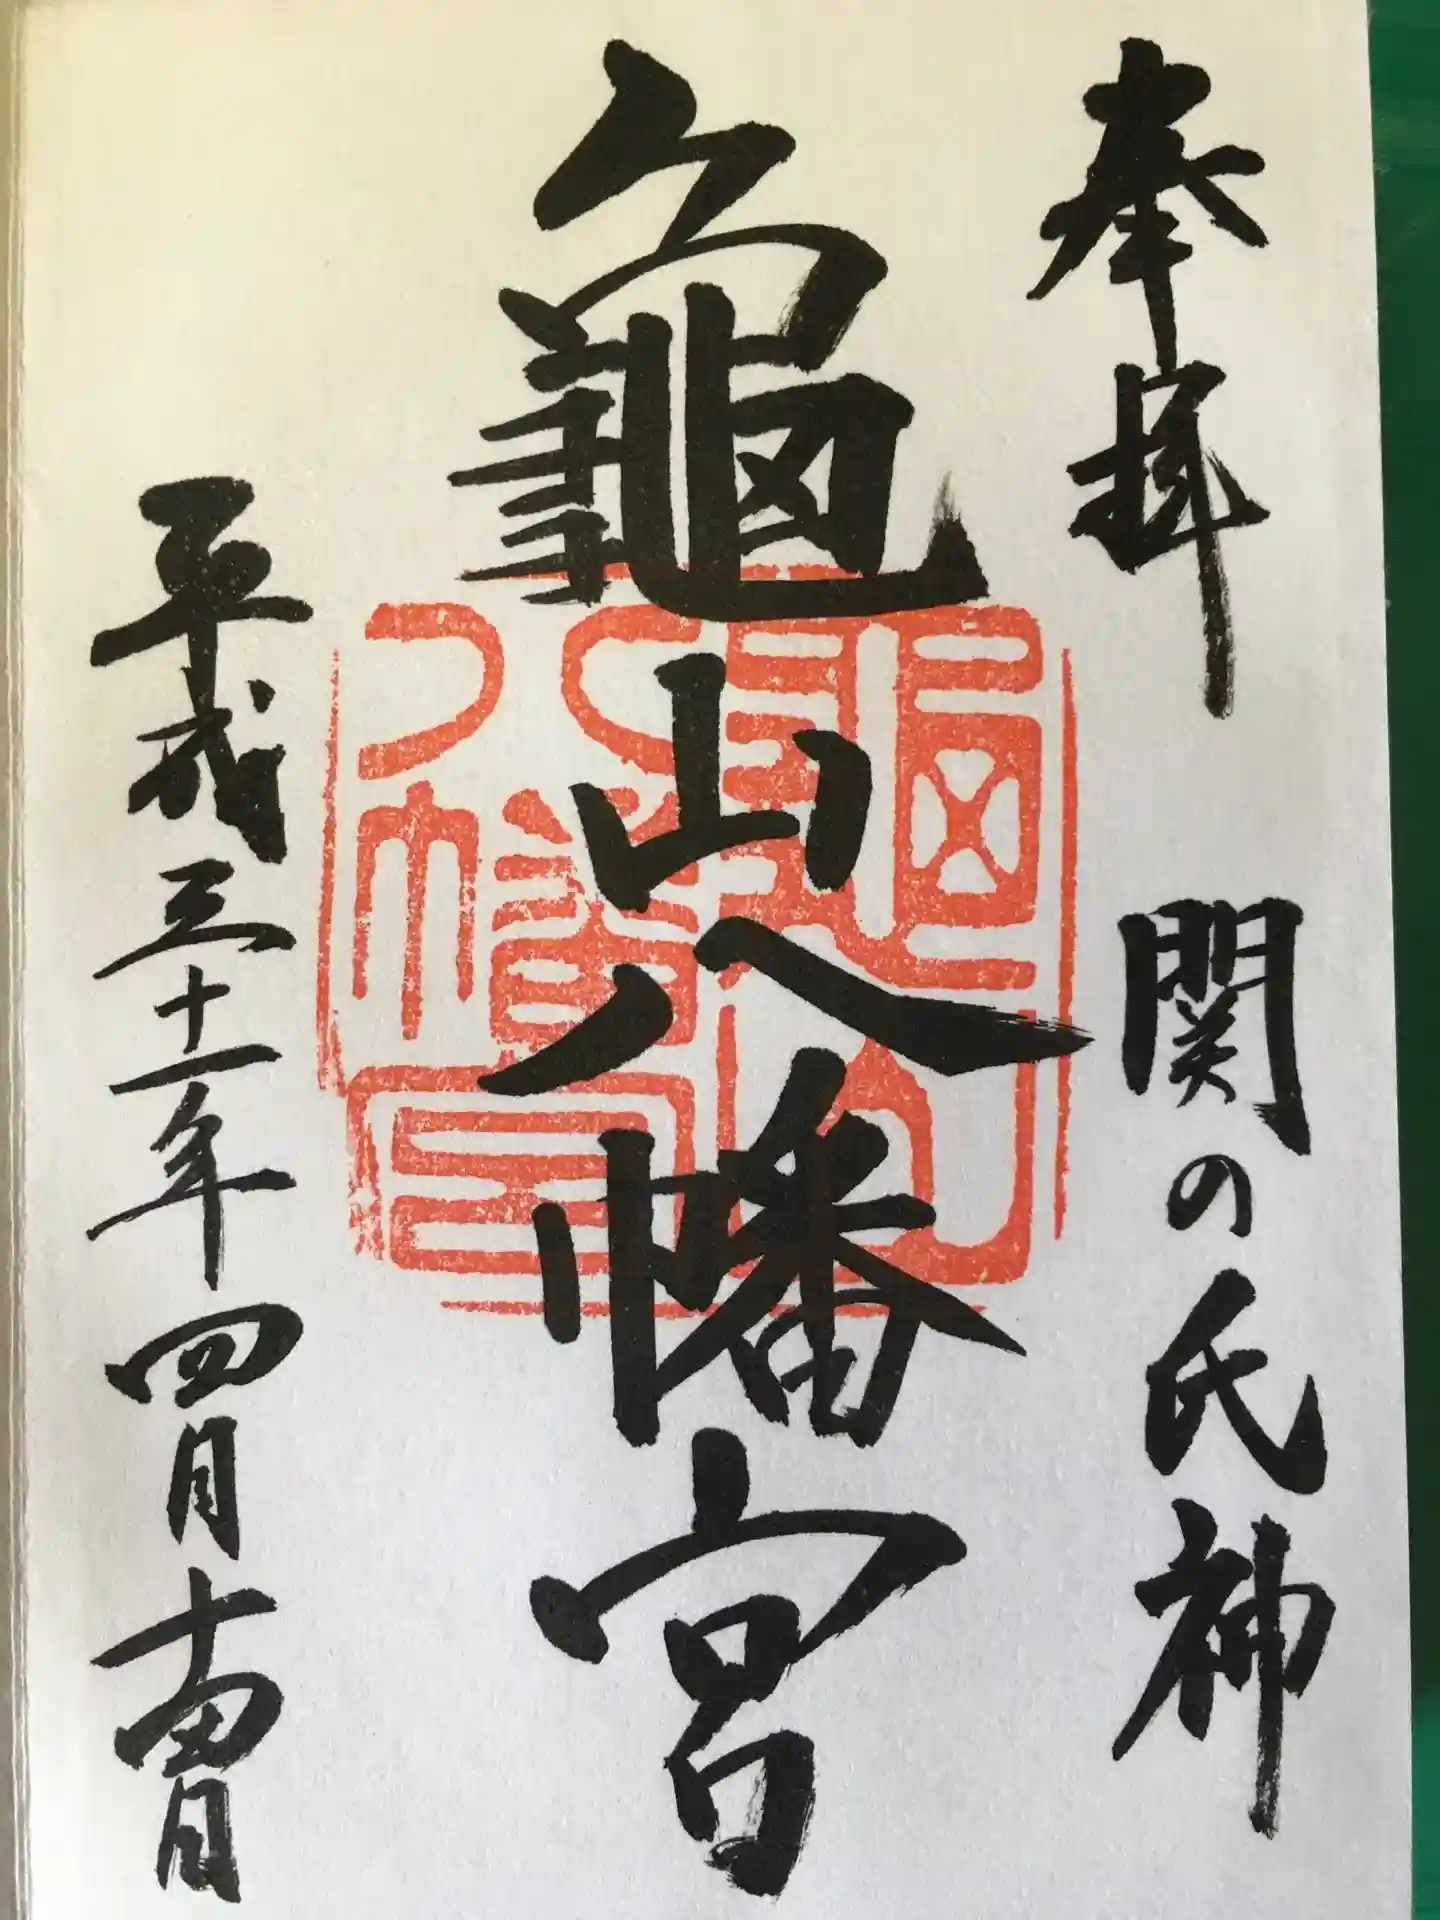 奉拝 関の氏神
龜山八幡宮
平成三十一年四月十四日